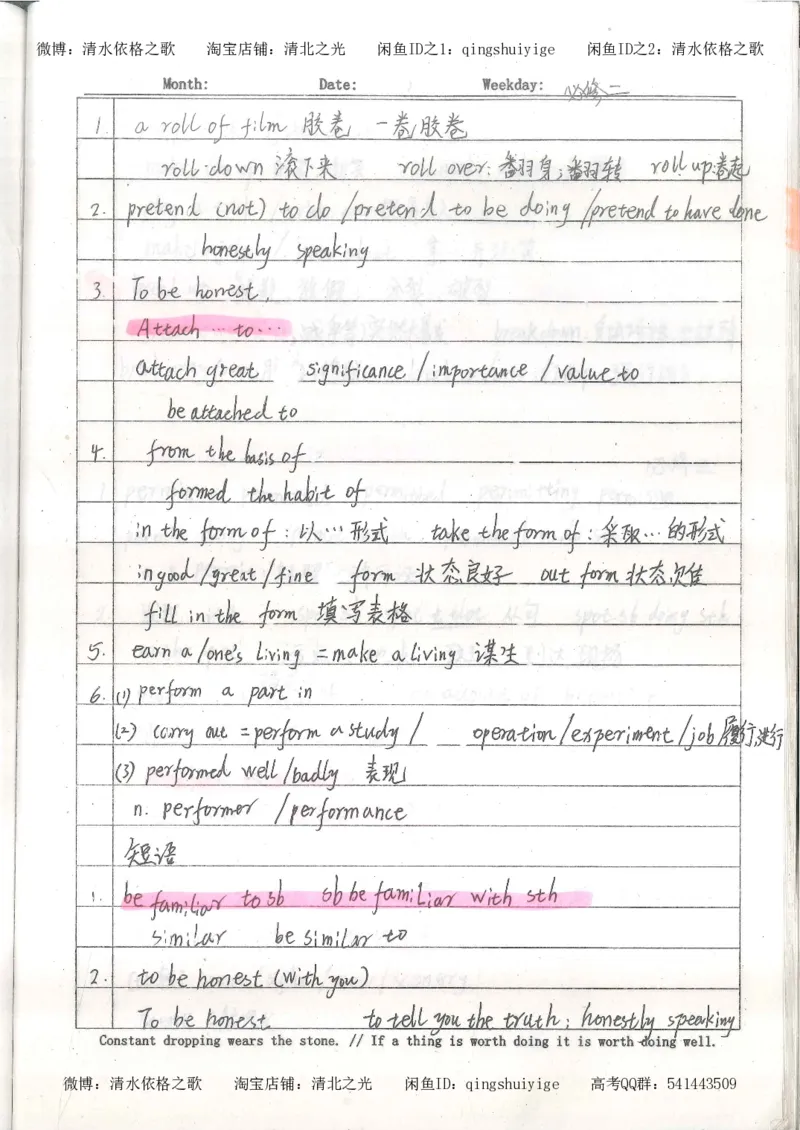 微博：清水依格之歌 淘宝店铺：清北之光 闲鱼ID之1：qingshuiyige 闲鱼ID之2：清水依格之歌
Month: Date: Weekday: 必修二
1. a roll of film 胶卷 一卷胶卷
roll down 滚下来 roll over：翻身；翻转 roll up：卷起
2. pretend (not) to do /pretend to be doing /pretend to have done
honestly speaking
3. To be honest,
Attach … to …
attach great significance / importance / value to
be attached to
4. from the basis of
formed the habit of
in the form of：以…形式 take the form of：采取…的形式
in good /great /fine form 状态良好 out form 状态欠佳
fill in the form 填写表格
5. earn a /one's living = make a living 谋生
6. (1) perform a part in
(2) carry out = perform a study / operation /experiment /job 履行,进行
(3) performed well /badly 表现
n. performer /performance
短语
1. be familiar to sb sb be familiar with sth
similar be similar to
2. to be honest (with you)
To be honest to tell you the truth; honestly speaking
Constant dropping wears the stone. // If a thing is worth doing it is worth doing well.
微博：清水依格之歌 淘宝店铺：清北之光 闲鱼ID：qingshuiyige 高考QQ群：541443509